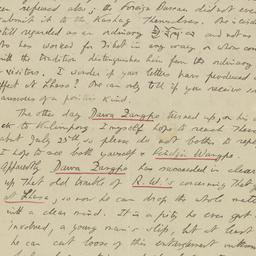 refused also; the Foreign Bureau did not even
submit it to the Kashag themselves. He is
still regarded as an ordinary and not as
who has worked for Tibet in any way, or whose
with the tradition distinguishes him from the ordinary
visitors. I wonder if your letters have produced
effect at Lhasa? One can only tell if you receive
answers of a positive kind.
The other day Dawa Zangpo turned up, on his
to Kalimpong. I myself hope to reach there
about July 25th so please do not bother to
I hope to see both yourself & Wangpo.
Apparently Dawa Zangpo has succeeded in
up that old trouble of R. W.'s concerning that
at Lhasa, so now he can drop the whole
with a clear mind. It is a pity he ever got
involved, a young man's slip, but at least
he can cut loose of this entanglement